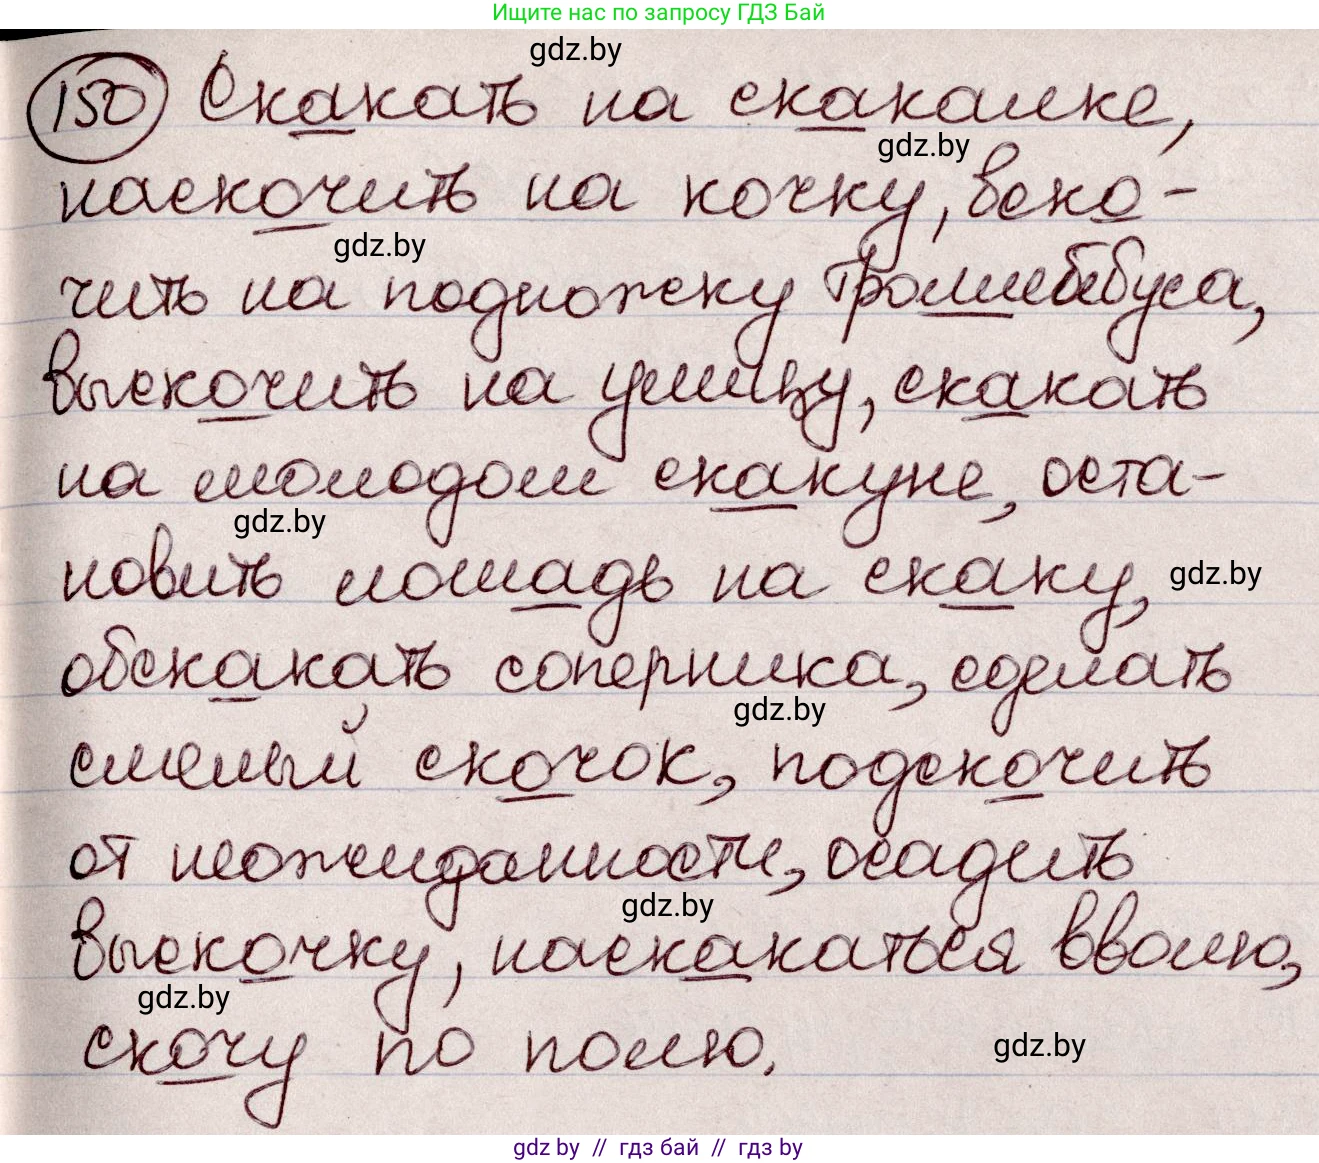 Ищите нас по запросу ГДЗ Бай
gdz.by
150 Скакать на скакалке,
gdz.by
наскочить на кочку, вско-
gdz.by
чить на подножку троллейбуса,
выскочить на улицу, скакать
на молодом скакуне, оста-
gdz.by
новить лошадь на скаку,
gdz.by
обскакать соперника, сделать
gdz.by
смелый скочок, подскочить
от неожиданности, осадить
gdz.by
выскочку, наскакаться вволю,
gdz.by
скочу по полю.
gdz.by
gdz by // гдз бай // гдз by